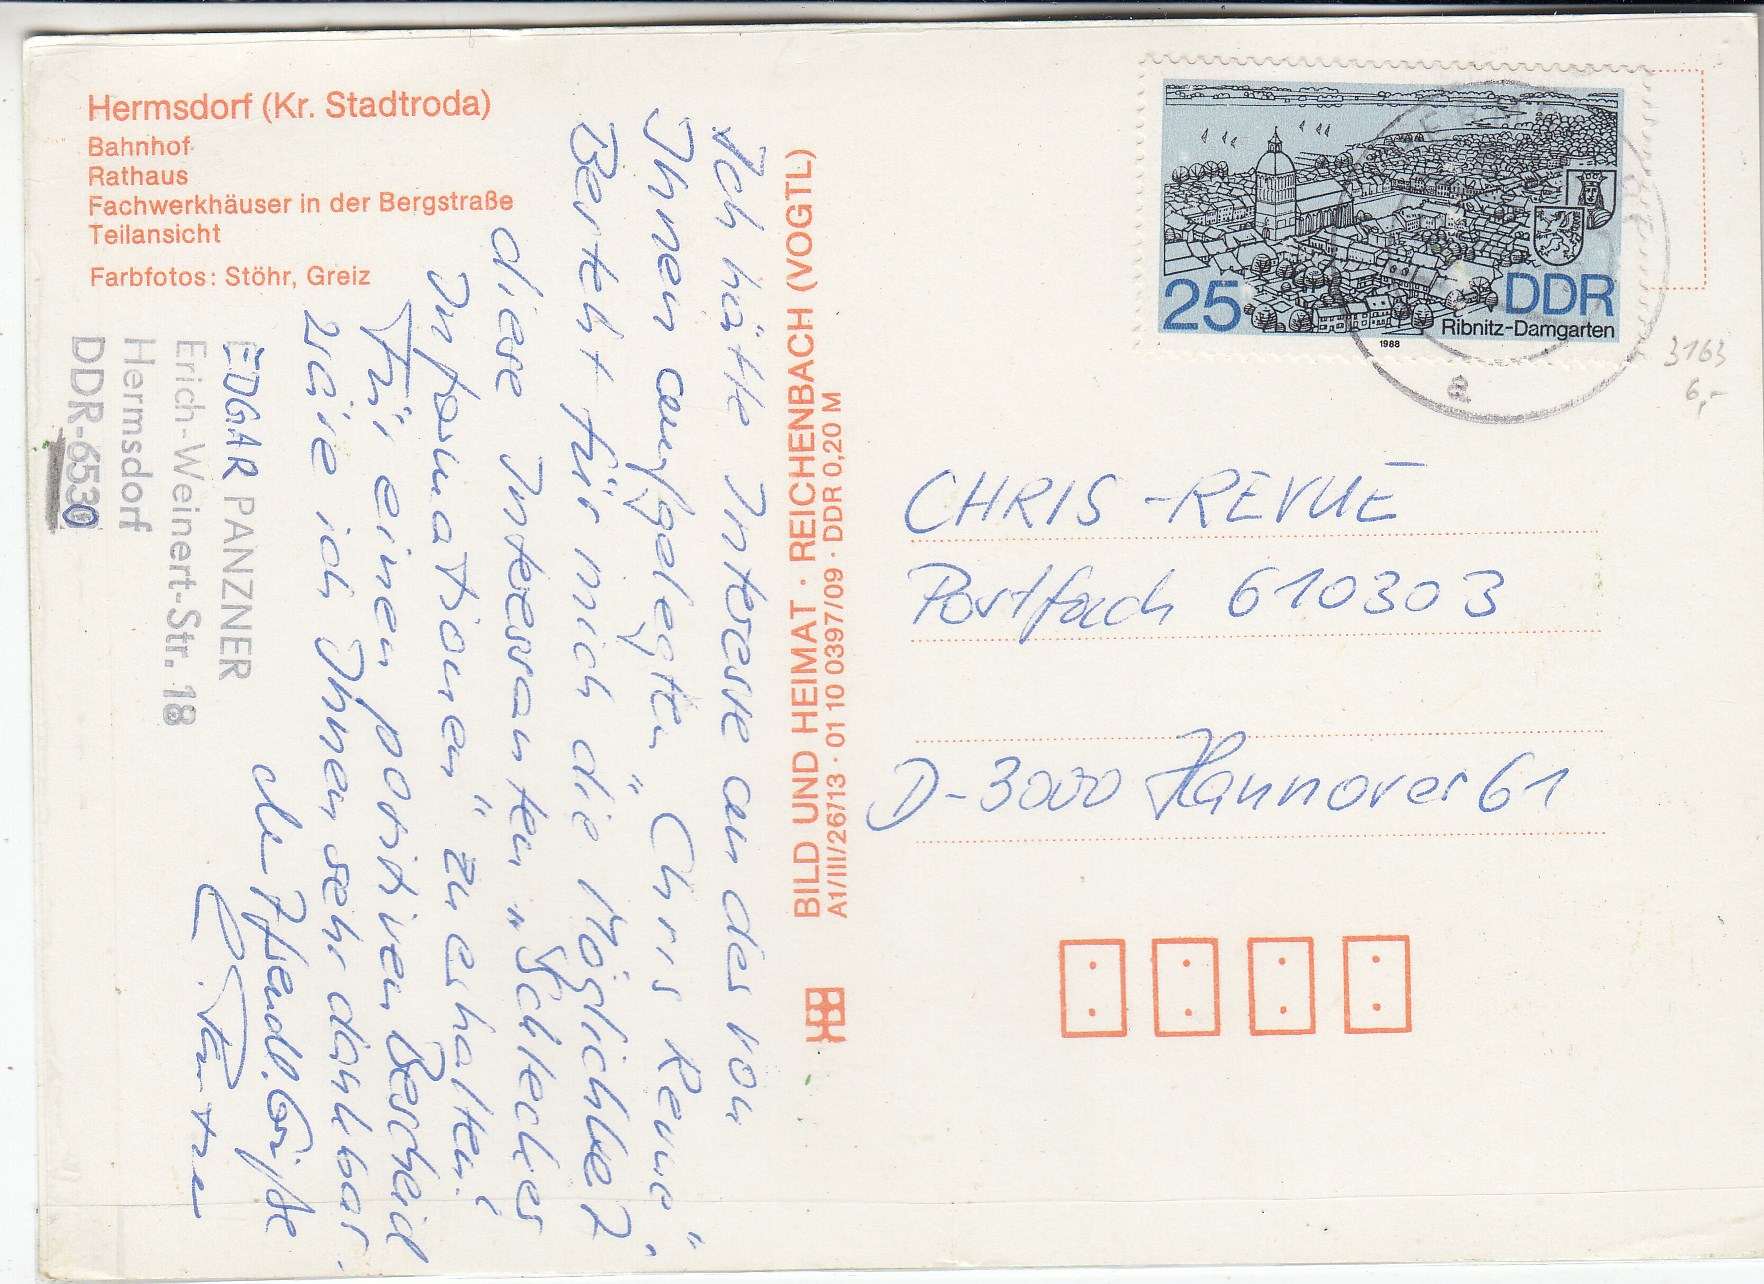 Hermsdorf (Kr. Stadtroda)
Bahnhof
Rathaus
Fachwerkhäuser in der Bergstraße
Teilansicht
Farbfotos: Stöhr, Greiz
EDGAR PANZNER
Erich-Weinert-Str. 18
Hermsdorf
DDR-6530
Ich hätte Interesse an der von
Ihnen aufgelegten "Chris Revue".
Besteht für mich die Möglichkeit
diese Interessanten "Schleckes
Informationen" zu erhalten?
Für einen positiven Bescheid
wäre ich Ihnen sehr dankbar.
Freundl. Grüße
BILD UND HEIMAT · REICHENBACH (VOGTL)
A1/III/26/13 · 01 10 0397/09 · DDR 0,20 M
25
DDR
Ribnitz-Damgarten
1988
a
3163
6,-
CHRIS-REVUE
Postfach 610303
D-3000 Hannover 61